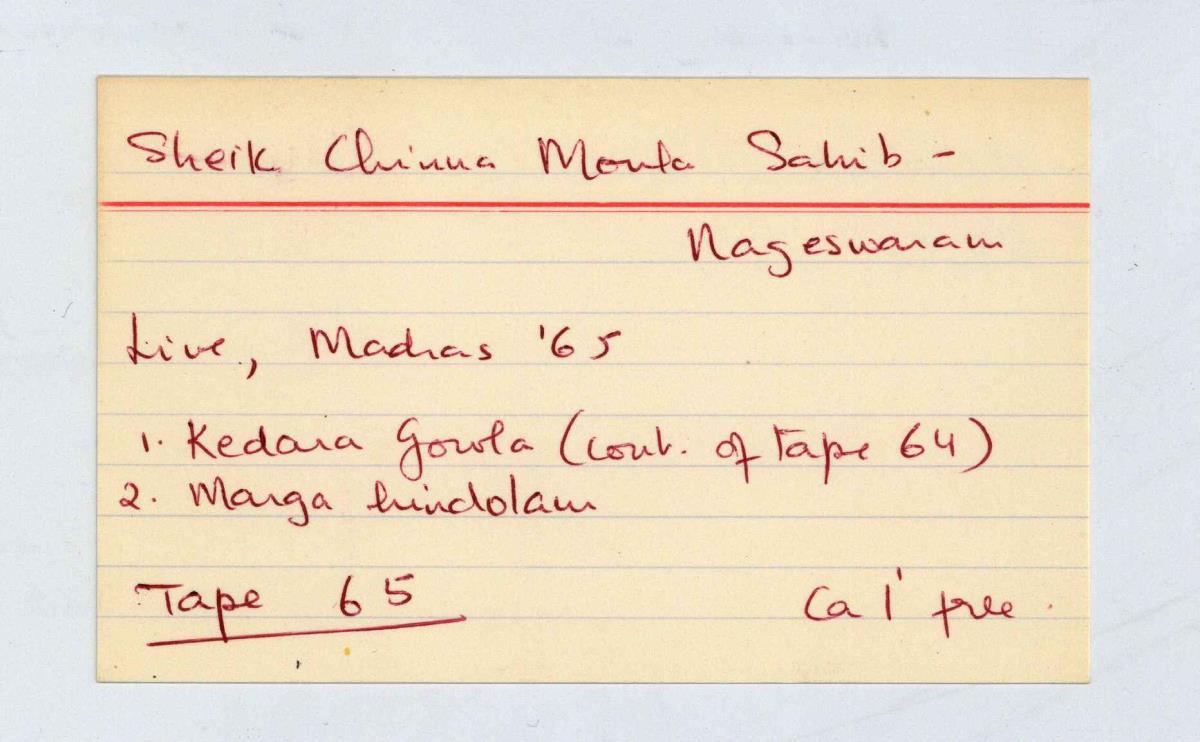 Sheik Chinna Moula Sahib -
Nageswaram
Live, Madras '65
1. Kedara Gowla (cont. of tape 64)
2. Marga hindolam
Tape 65
Ca 1' free